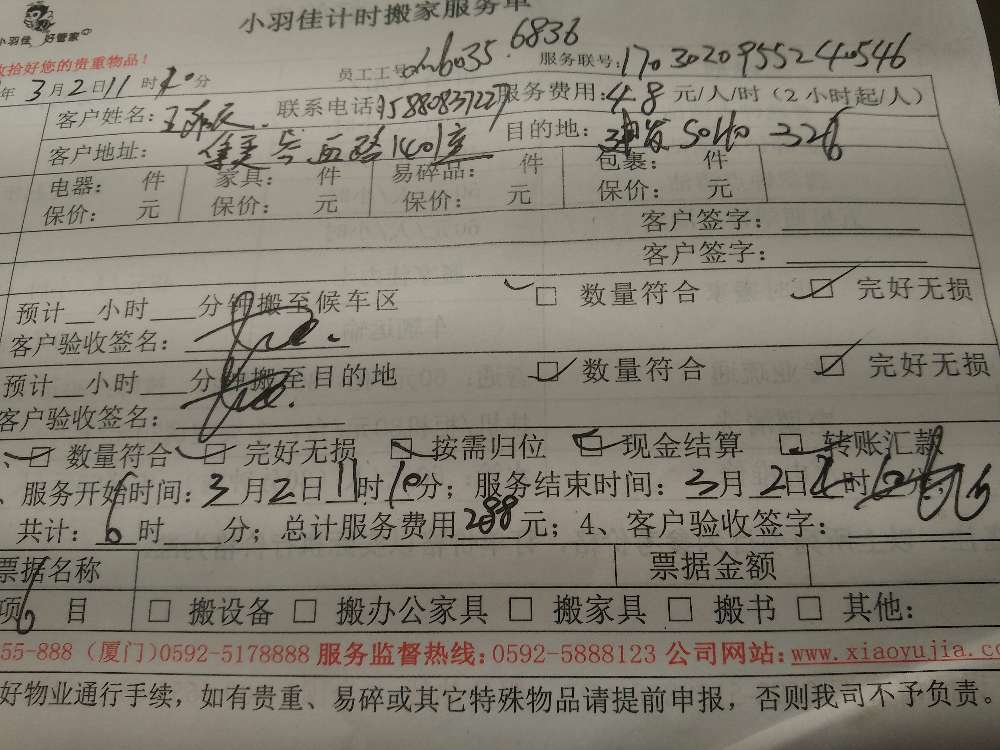 小羽佳计时搬家服务单
小羽佳 好管家
收拾好您的贵重物品!
员工工号 6035 6836 服务联号:17030209552240546
年3月2日11时10分
客户姓名:王 联系电话:15880837227 服务费用:48元/人/时(2小时起/人)
客户地址: 集美 西路1401 目的地: SOHO 326
电器: 件 家具: 件 易碎品: 件 包裹: 件
保价: 元 保价: 元 保价: 元 保价: 元
客户签字:
客户签字:
预计__小时___分钟搬至候车区 □ 数量符合 □ 完好无损
客户验收签名:
预计__小时___分钟搬至目的地 □ 数量符合 □ 完好无损
客户验收签名:
、□ 数量符合 □ 完好无损 □ 按需归位 □ 现金结算 □ 转账汇款
、服务开始时间:3月2日11时10分;服务结束时间:3月2日 时 分
共计:6时 分;总计服务费用288元;4、客户验收签字:
票据名称 票据金额
项 目 □ 搬设备 □ 搬办公家具 □ 搬家具 □ 搬书 □ 其他:
55-888 (厦门)0592-5178888 服务监督热线:0592-5888123 公司网站:www.xiaoyujia.co
好物业通行手续,如有贵重、易碎或其它特殊物品请提前申报,否则我司不予负责。